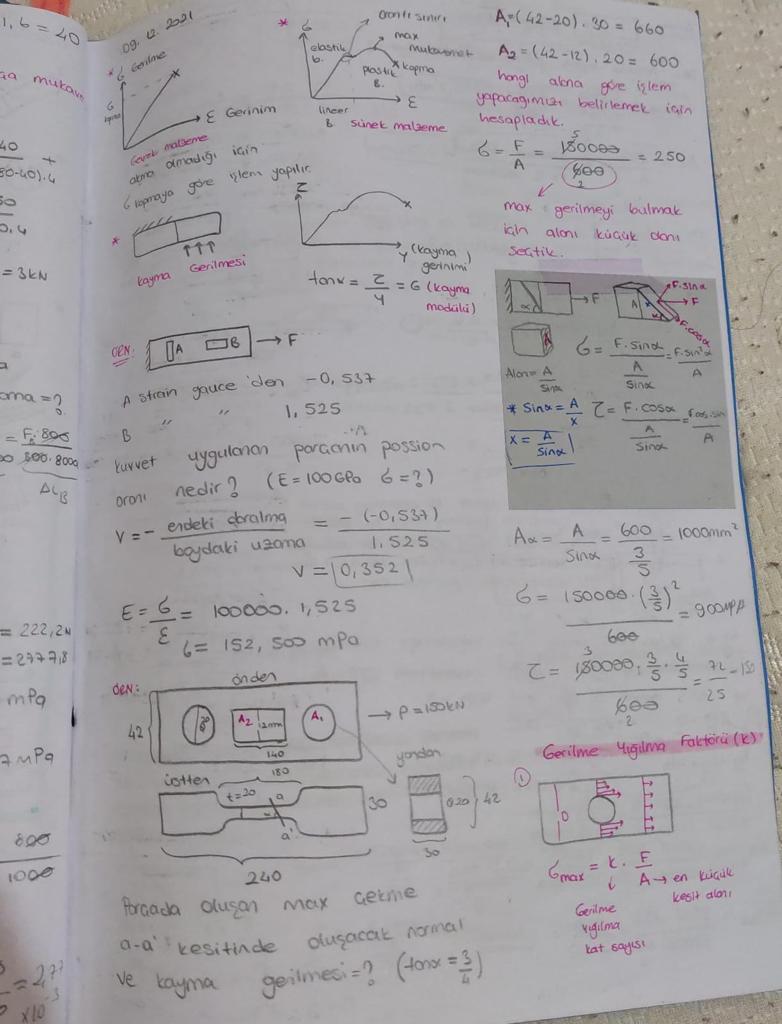 1,6 = 40
09.12.2021
* σ Gerilme
σ kopma
ε Gerinim
Gevrek malzeme
akma olmadığı için
σ kopmaya göre işlem yapılır.
* σ
orantı sınırı
max
mukavemet
elastik
b.
plastik
B.
kopma
ε
lineer
B
sünek malzeme
*
kayma Gerilmesi
τ
γ (kayma
gerinimi)
tanα = τ/γ = G (kayma
modülü)
ÖRN:
A
B
→ F
A strain gauce'den -0,537
B " " 1,525
kuvvet uygulanan parçanın possion
oranı nedir? (E=100GPa σ=?)
V = - endeki daralma / boydaki uzama = -(-0,537) / 1,525
V = 0,352
E = σ/ε = 100000 . 1,525
σ = 152,500 mPa
ÖRN:
önden
42
A2
12mm
A1
140
→ P = 150kN
üstten
180
t=20
a
a'
30
240
yandan
42
30
Parçada oluşan max çekme
a-a' kesitinde oluşacak normal
ve kayma gerilmesi=? (tanα = 3/4)
A1=(42-20).30 = 660
A2 = (42-12).20 = 600
hangi alana göre işlem
yapacağımızı belirlemek için
hesapladık.
σ = F/A = 150000/600 = 250
max gerilmeyi bulmak
için alanı küçük olanı
seçtik.
α
→ F
A
x
α
F.sinα
F
F.cosα
A
Alan = A/sinα
σ = F.sinα / (A/sinα) = F.sin²α / A
* sinα = A/x
x = A/sinα
τ = F.cosα / (A/sinα) = F.cos.sin / A
Aα = A/sinα = 600/(3/5) = 1000mm²
σ = 150000.(3/5)² / 600 = 900MPA
τ = 150000 . 3/5 . 4/5 / 600 = 72/25
Gerilme Yığılma Faktörü (k)
①
D
σmax = k . F/A → en küçük
kesit alanı
Gerilme
yığılma
kat sayısı
= 3kN
= 222,2N
= 2777,8
mPa
7 mPa
800
1000